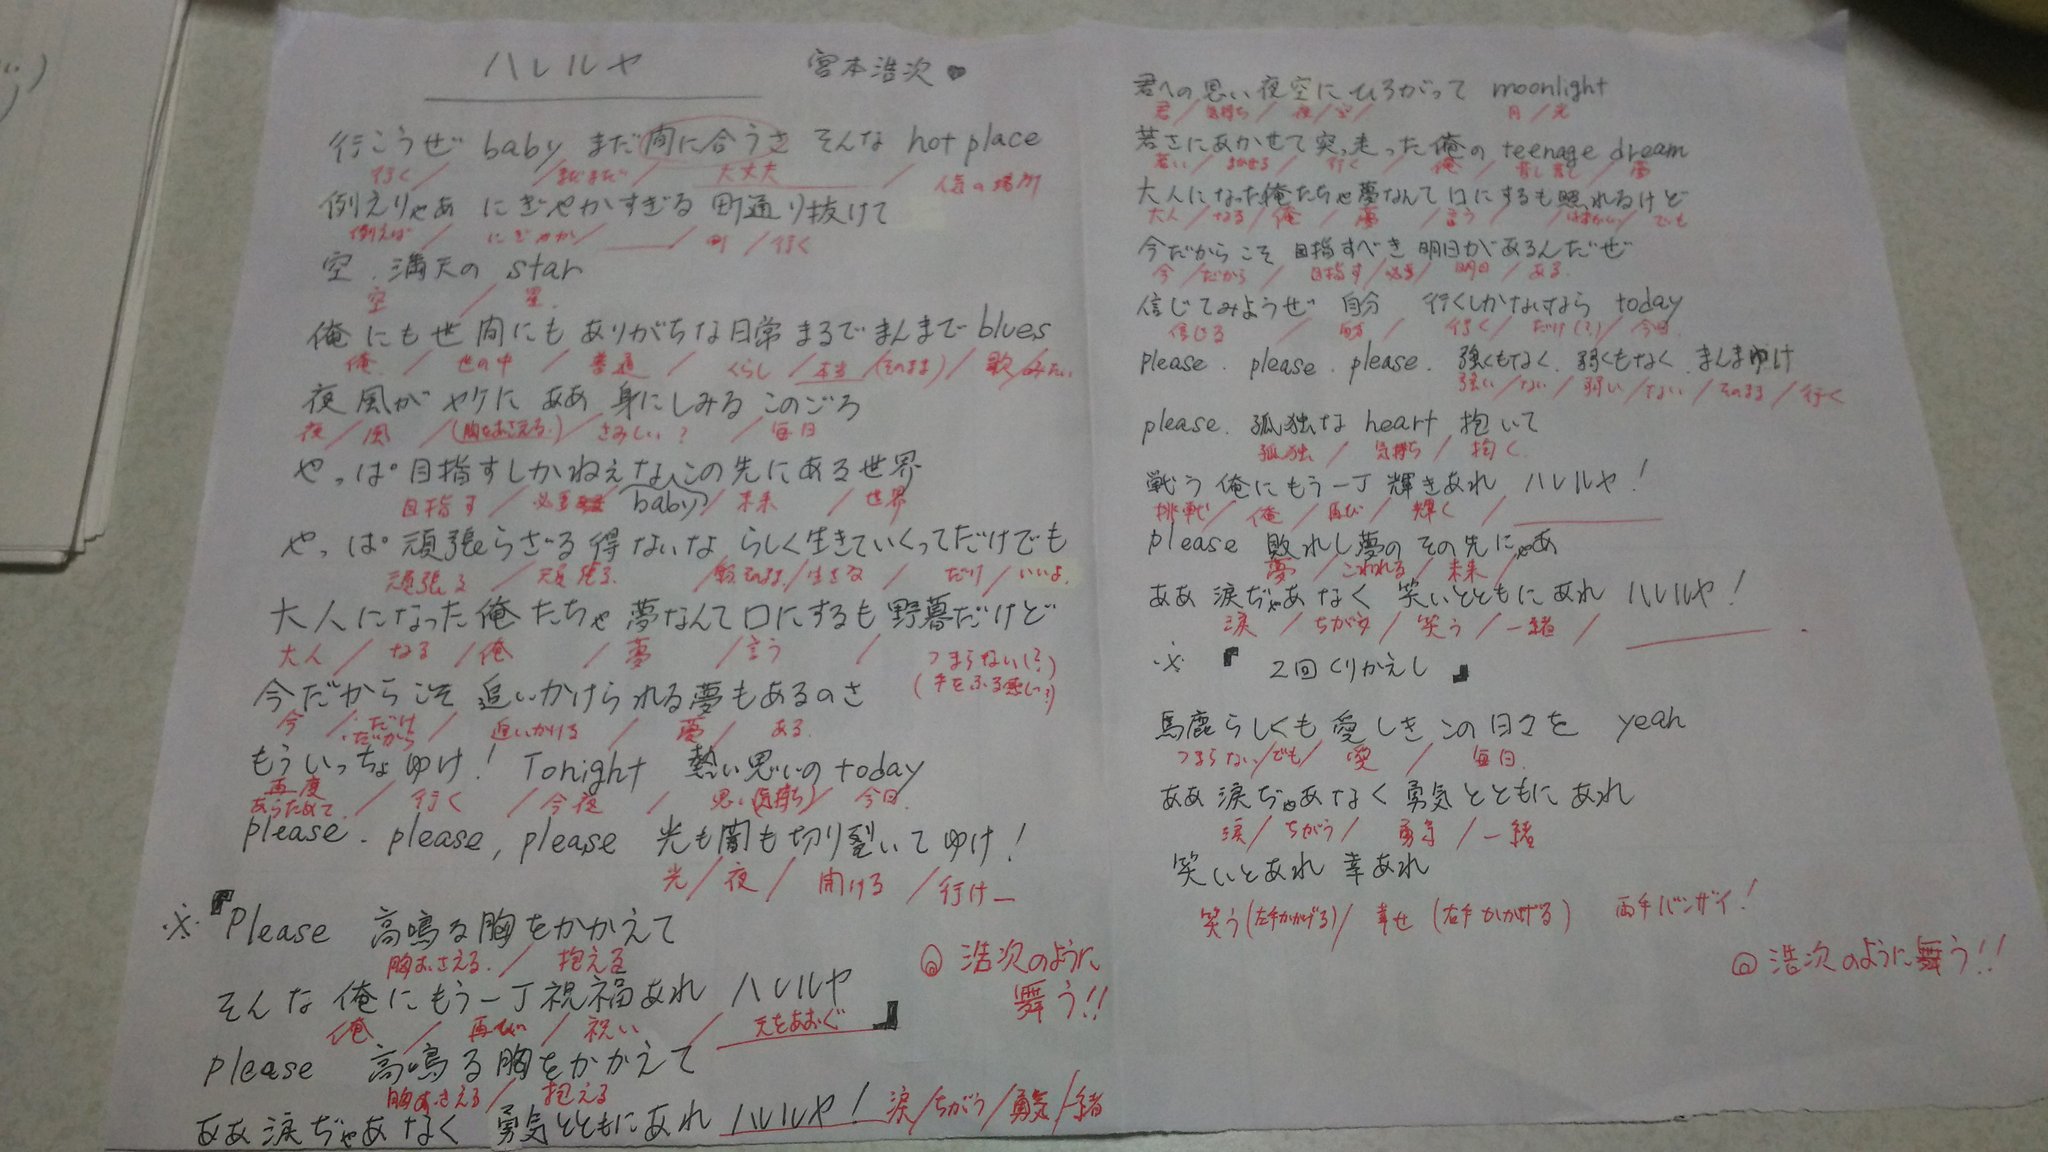 ハレルヤ 宮本浩次♥
行こうぜ baby まだ間に合うさ そんな hot place
行く/ /まだまだ/ 大丈夫 / 人気の場所
例えりゃあ にぎやかすぎる 町通り抜けて
例えば/ にぎやか/ / 町 /行く
空.満天の star
空 / 星.
俺にも世間にも ありがちな日常 まるでまんまで blues
俺 / 世の中 / 普通 / くらし/本当/(そのまま)/歌/みたい
夜風が ヤケに ああ 身にしみる このごろ
夜/風 /(胸をおさえる.)/さみしい? /毎日
やっぱ目指すしかねえな、この先にある世界
目指す /必要 baby /未来 /世界
やっぱ頑張らざる得ないな らしく生きていくってだけでも
頑張る /頑張る. / /生きる / だけ /いいよ.
大人になった俺たちゃ夢なんて口にするも野暮だけど
大人/なる/俺 /夢 /言う / つまらない(?)
(手をふる感じ?)
今だからこそ 追いかけられる夢もあるのさ
今 /・だけ ・だから / 追いかける / 夢/ ある.
もういっちょゆけ! Tonight 熱い思いの today
再度 あらためて./ 行く /今夜 / 思い(気持ち)/ 今日.
please. please, please 光も闇も切り裂いてゆけ!
光/夜/ 開ける /行けー
※『Please 高鳴る胸をかかえて
胸おさえる./ 抱える
そんな俺にもう一丁祝福あれ ハレルヤ』
俺 / 再び /祝い / 天をあおぐ
◎浩次のように
舞う!!
please 高鳴る胸をかかえて
胸おさえる/ 抱える
ああ涙ぢゃあなく 勇気とともにあれ ハレルヤ! 涙/ちがう/勇気/一緒
君への思い夜空にひろがって moonlight
君/気持ち/夜/空/ 月/光
若さにあかせて突っ走った俺の teenage dream
若い/まかせる/行く / 俺 /昔し昔で/夢
大人になった俺たちゃ夢なんて口にするも照れるけど
大人/なる/俺 /夢 /言う / /はずかしい/でも
今だからこそ 目指すべき明日があるんだぜ
今/だから/ 目指す/必要/明日/ある.
信じてみようぜ 自分 行くしかないなら today
信じる / 自分/ 行く/だけ(?)/今日.
please. please. please. 強くもなく.弱くもなく.まんまゆけ
強い/ない/弱い/ない/そのまま/行く
please. 孤独な heart 抱いて
孤独/気持ち/抱く.
戦う俺にもう一丁輝きあれ ハレルヤ!
挑戦/俺/再び/輝く/
please 敗れし夢のその先にゃあ
夢/こわれる/未来/
ああ涙ぢゃあなく 笑いとともにあれ ハレルヤ!
涙 /ちがう/笑う/一緒/
※『 2回くりかえし 』
馬鹿らしくも愛しきこの日々を yeah
つまらない/でも/愛/ 毎日.
ああ涙ぢゃあなく勇気とともにあれ
涙/ちがう/ 勇気/一緒
笑いとあれ 幸あれ
笑う(左手かかげる)/ 幸せ(右手かかげる) 両手バンザイ!
◎浩次のように舞う!!